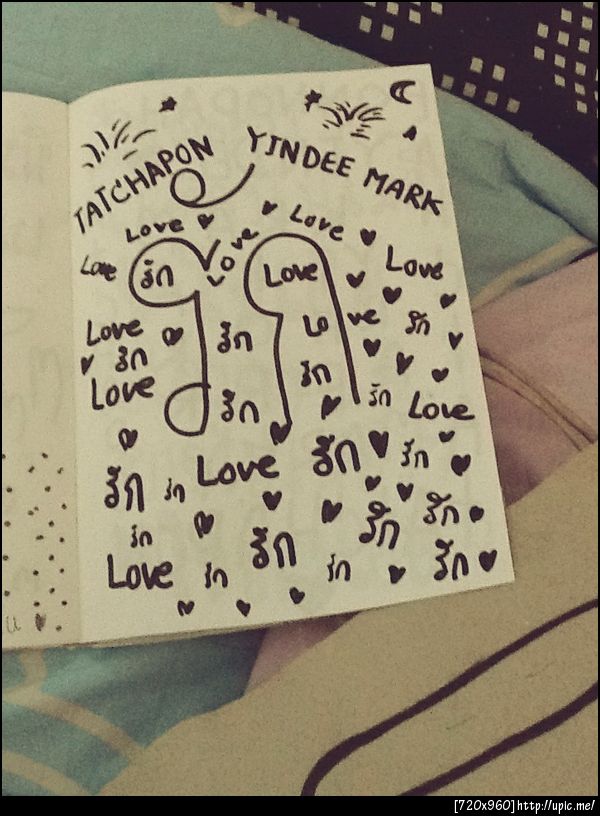 TATCHAPON YINDEE MARK
Love Love
Love Love
รัก
Love รัก Love
Love รัก Love รัก
รัก รัก
Love รัก รัก Love
Love รัก รัก
รัก รัก
รัก รัก
รัก รัก
Love รัก รัก รัก
[720x960]http://upic.me/